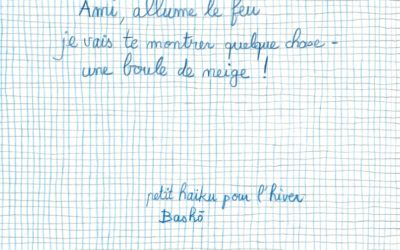 Ami, allume le feu
je vais te montrer quelque chose -
une boule de neige !
petit haïku pour l'hiver
Bashō